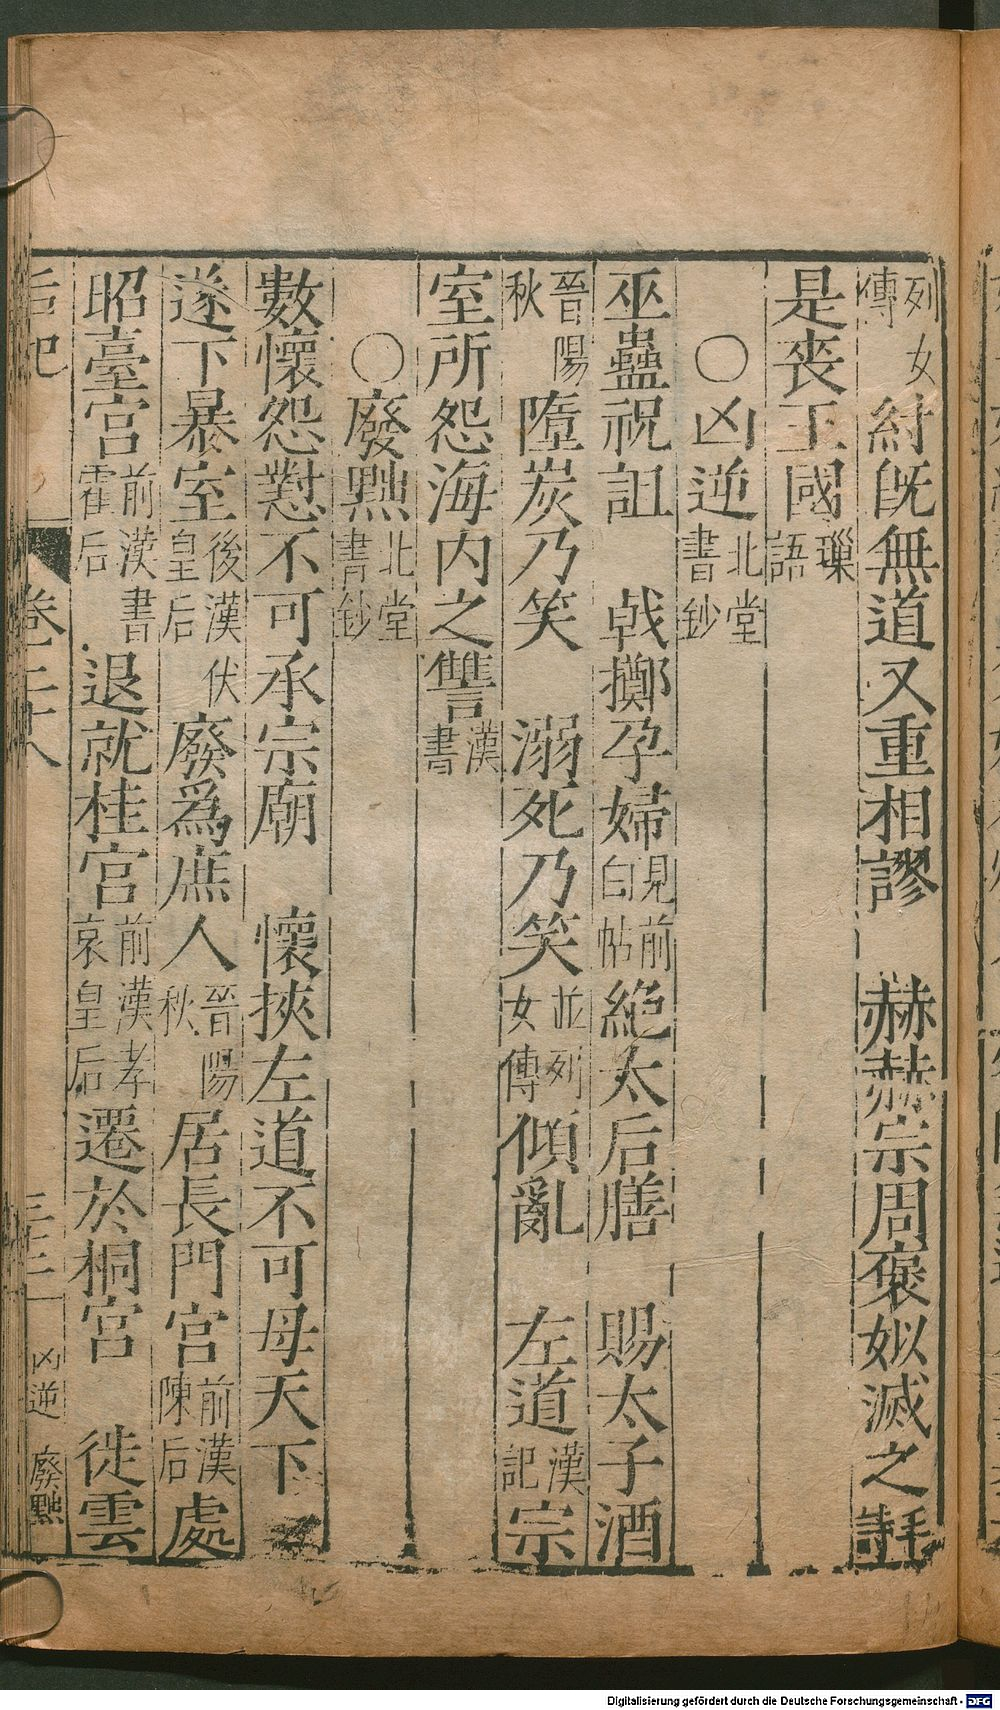 列女傳 紂旣無道又重相謬 赫赫宗周褒姒滅之毛詩
是喪王國璅語
○凶逆北堂書鈔
巫蠱祝詛 戟擲孕婦見前白帖 絶太后膳 賜太子酒
晉陽秋 墮炭乃笑 溺死乃笑並列女傳 傾亂 左道漢記 宗
室所怨海内之讐漢書
○廢黜北堂書鈔
數懷怨懟不可承宗廟 懷挾左道不可母天下
遂下暴室後漢伏皇后 廢爲庶人晉陽秋 居長門宮前漢陳后 處
昭臺宮前漢書霍后 退就桂宮前漢孝哀皇后 遷於桐宮 徙雲
后妃 卷二十八 三十二 凶逆 廢黜
Digitalisierung gefördert durch die Deutsche Forschungsgemeinschaft - DFG